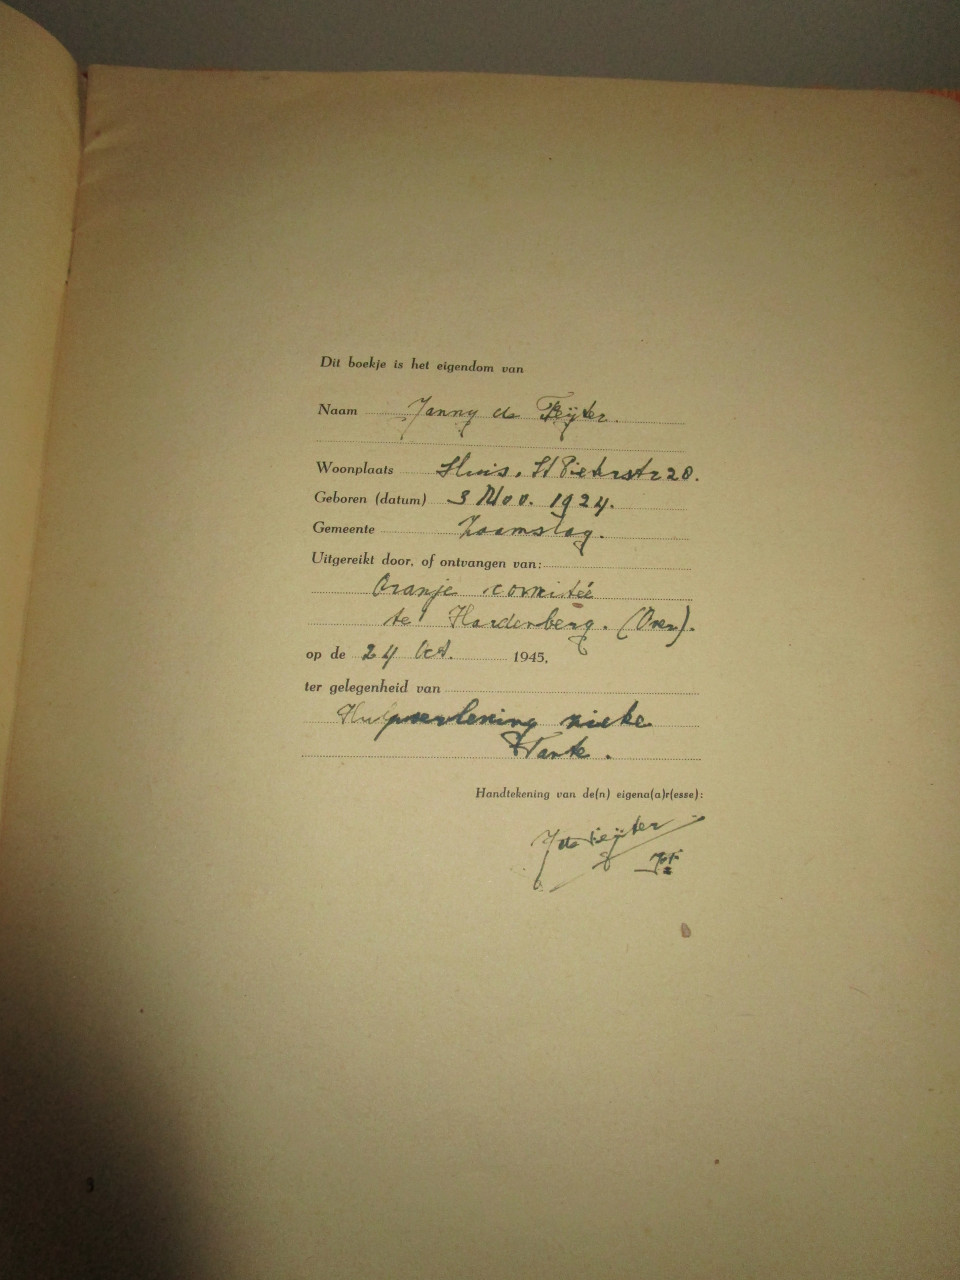 Dit boekje is het eigendom van
Naam Janny de Feijter.
Woonplaats Sluis. St Pieterstr 20.
Geboren (datum) 3 Nov. 1924.
Gemeente Zaamslag.
Uitgereikt door, of ontvangen van:
Oranje comitée
te Hardenberg. (Over).
op de 24 Oct. 1945,
ter gelegenheid van
Hulpverlening zieke
Tante.
Handtekening van de(n) eigena(a)r(esse):
J de Feijter
3